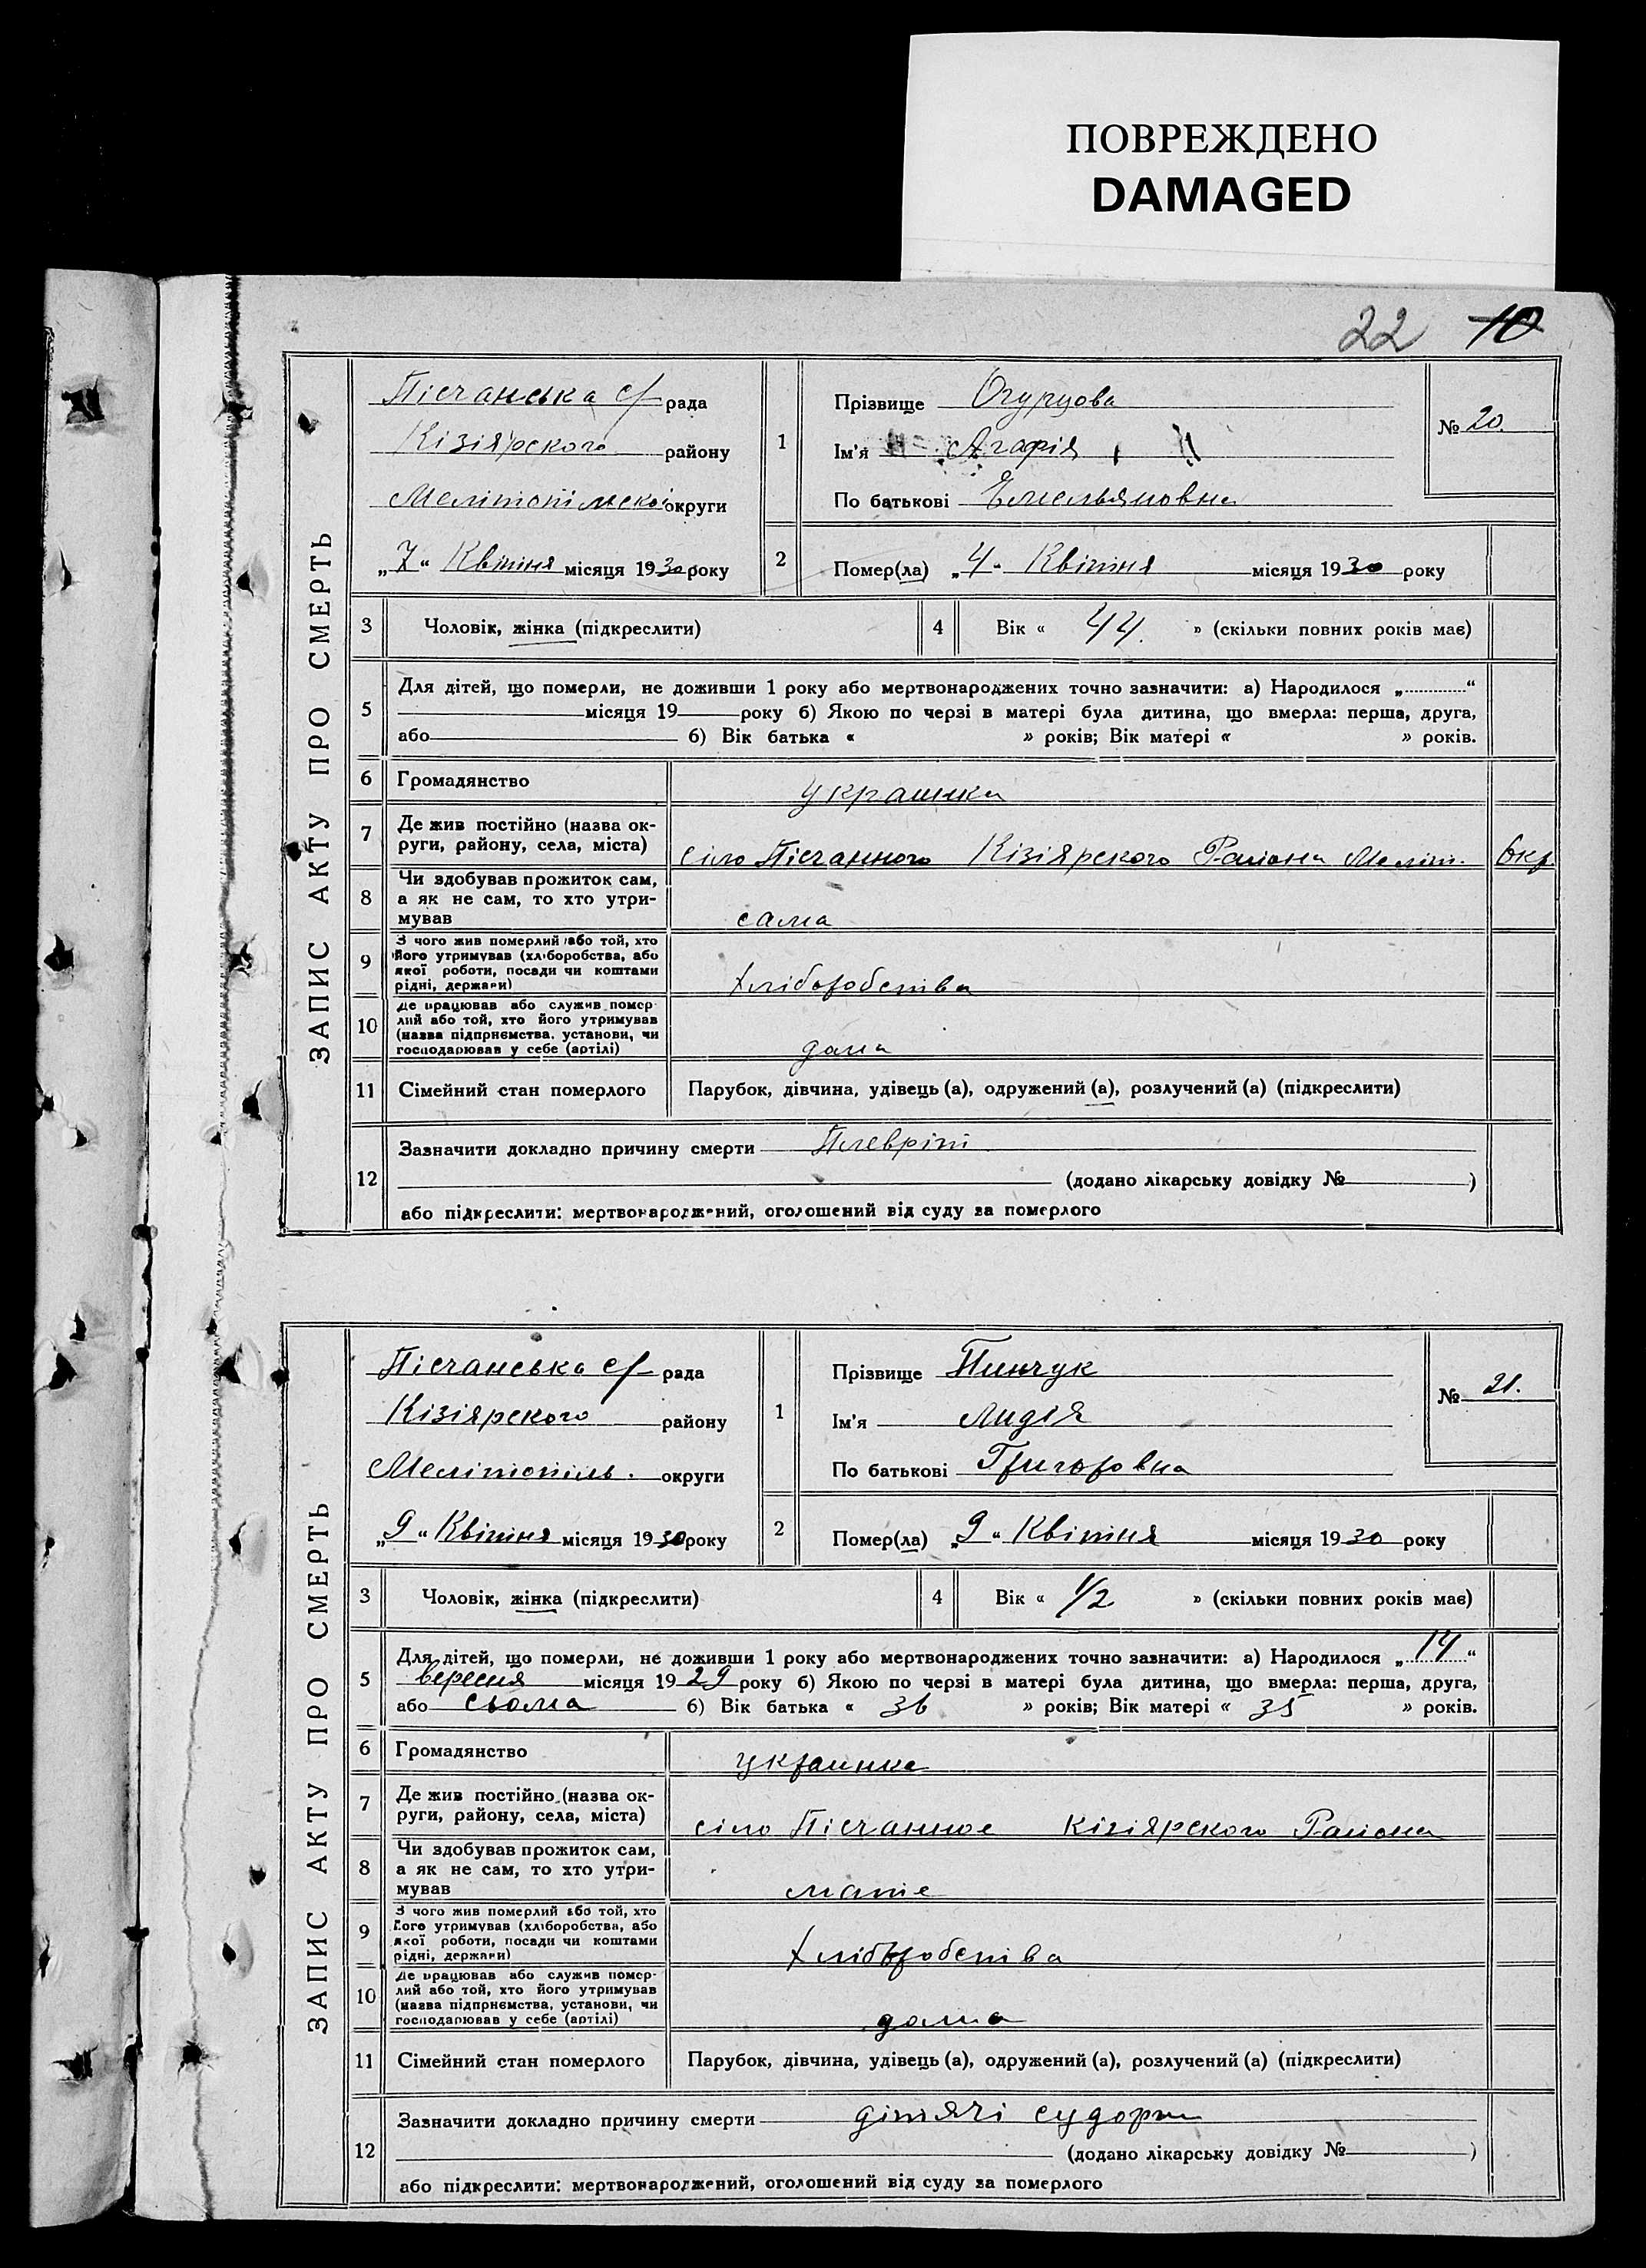 ПОВРЕЖДЕНО
DAMAGED
22 10
ЗАПИС АКТУ ПРО СМЕРТЬ
Пісчанська с/ рада
Кізіярского району
Мелітопільскоі округи
„7“ Квітня місяця 1930 року
1
Прізвище Огурцова
Ім'я Агафія
По батькові Емельяновна
№ 20.
2
Помер(ла) „4“ Квітня місяця 1930 року
3 Чоловік, жінка (підкреслити)
4 Вік « 44. » (скільки повних років має)
5 Для дітей, що померли, не доживши 1 року або мертвонароджених точно зазначити: а) Народилося „ “
місяця 19 року б) Якою по черзі в матері була дитина, що вмерла: перша, друга,
або б) Вік батька « » років; Вік матері « » років.
6 Громадянство украинка
7 Де жив постійно (назва ок-
руги, району, села, міста) сіло Пісчанного Кізіярского Раиона Меліт. Окр.
8 Чи здобував прожиток сам,
а як не сам, то хто утри-
мував сама
9 З чого жив померлий або той, хто
його утримував (хліборобства, або
якої роботи, посади чи коштами
рідні, держави) хліборобства
10 Де працював або служив помер-
лий або той, хто його утримував
(назва підприємства, установи, чи
господарював у себе (артілі) дома
11 Сімейний стан померлого Парубок, дівчина, удівець (а), одружений (а), розлучений (а) (підкреслити)
12 Зазначити докладно причину смерти Плевріт
(додано лікарську довідку № )
або підкреслити: мертвонароджений, оголошений від суду за померлого
ЗАПИС АКТУ ПРО СМЕРТЬ
Пісчанська с/ рада
Кізіярского району
Мелітопіль. округи
„9“ Квітня місяця 1930 року
1
Прізвище Пинчук
Ім'я Лидія
По батькові Григоровна
№ 21.
2
Помер(ла) „9“ Квітня місяця 1930 року
3 Чоловік, жінка (підкреслити)
4 Вік « 1/2 » (скільки повних років має)
5 Для дітей, що померли, не доживши 1 року або мертвонароджених точно зазначити: а) Народилося „14“
вересня місяця 1929 року б) Якою по черзі в матері була дитина, що вмерла: перша, друга,
або сьома б) Вік батька « 36 » років; Вік матері « 35 » років.
6 Громадянство украинка
7 Де жив постійно (назва ок-
руги, району, села, міста) сіло Пісчанное Кізіярского Раиона
8 Чи здобував прожиток сам,
а як не сам, то хто утри-
мував
9 З чого жив померлий або той, хто
його утримував (хліборобства, або
якої роботи, посади чи коштами
рідні, держави) хліборобства
10 Де працював або служив помер-
лий або той, хто його утримував
(назва підприємства, установи, чи
господарював у себе (артілі) дома
11 Сімейний стан померлого Парубок, дівчина, удівець (а), одружений (а), розлучений (а) (підкреслити)
12 Зазначити докладно причину смерти дітячі судорги
(додано лікарську довідку № )
або підкреслити: мертвонароджений, оголошений від суду за померлого